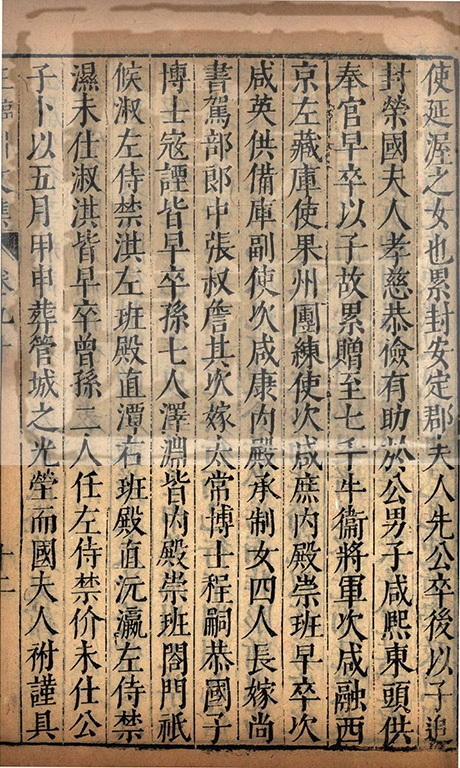 使延渥之女也累封安定郡夫人先公卒後以子追
封榮國夫人孝慈恭儉有助於公男子咸熙東頭供
奉官早卒以子故累贈至七千牛衞將軍次咸融西
京左藏庫使果州團練使次咸庶内殿崇班早卒次
咸英供備庫副使次咸康内殿承制女四人長嫁尚
書駕部郎中張叔詹其次嫁太常博士程嗣恭國子
博士寇諲皆早卒孫七人澤淵皆内殿崇班閤門祇
候淑左侍禁淇左班殿直潭右班殿直沅瀛左侍禁
濕未仕淑淇皆早卒曾孫二人任左侍禁价未仕公
子卜以五月甲申葬管城之先塋而國夫人祔謹具
王臨川文集 卷九十 十二